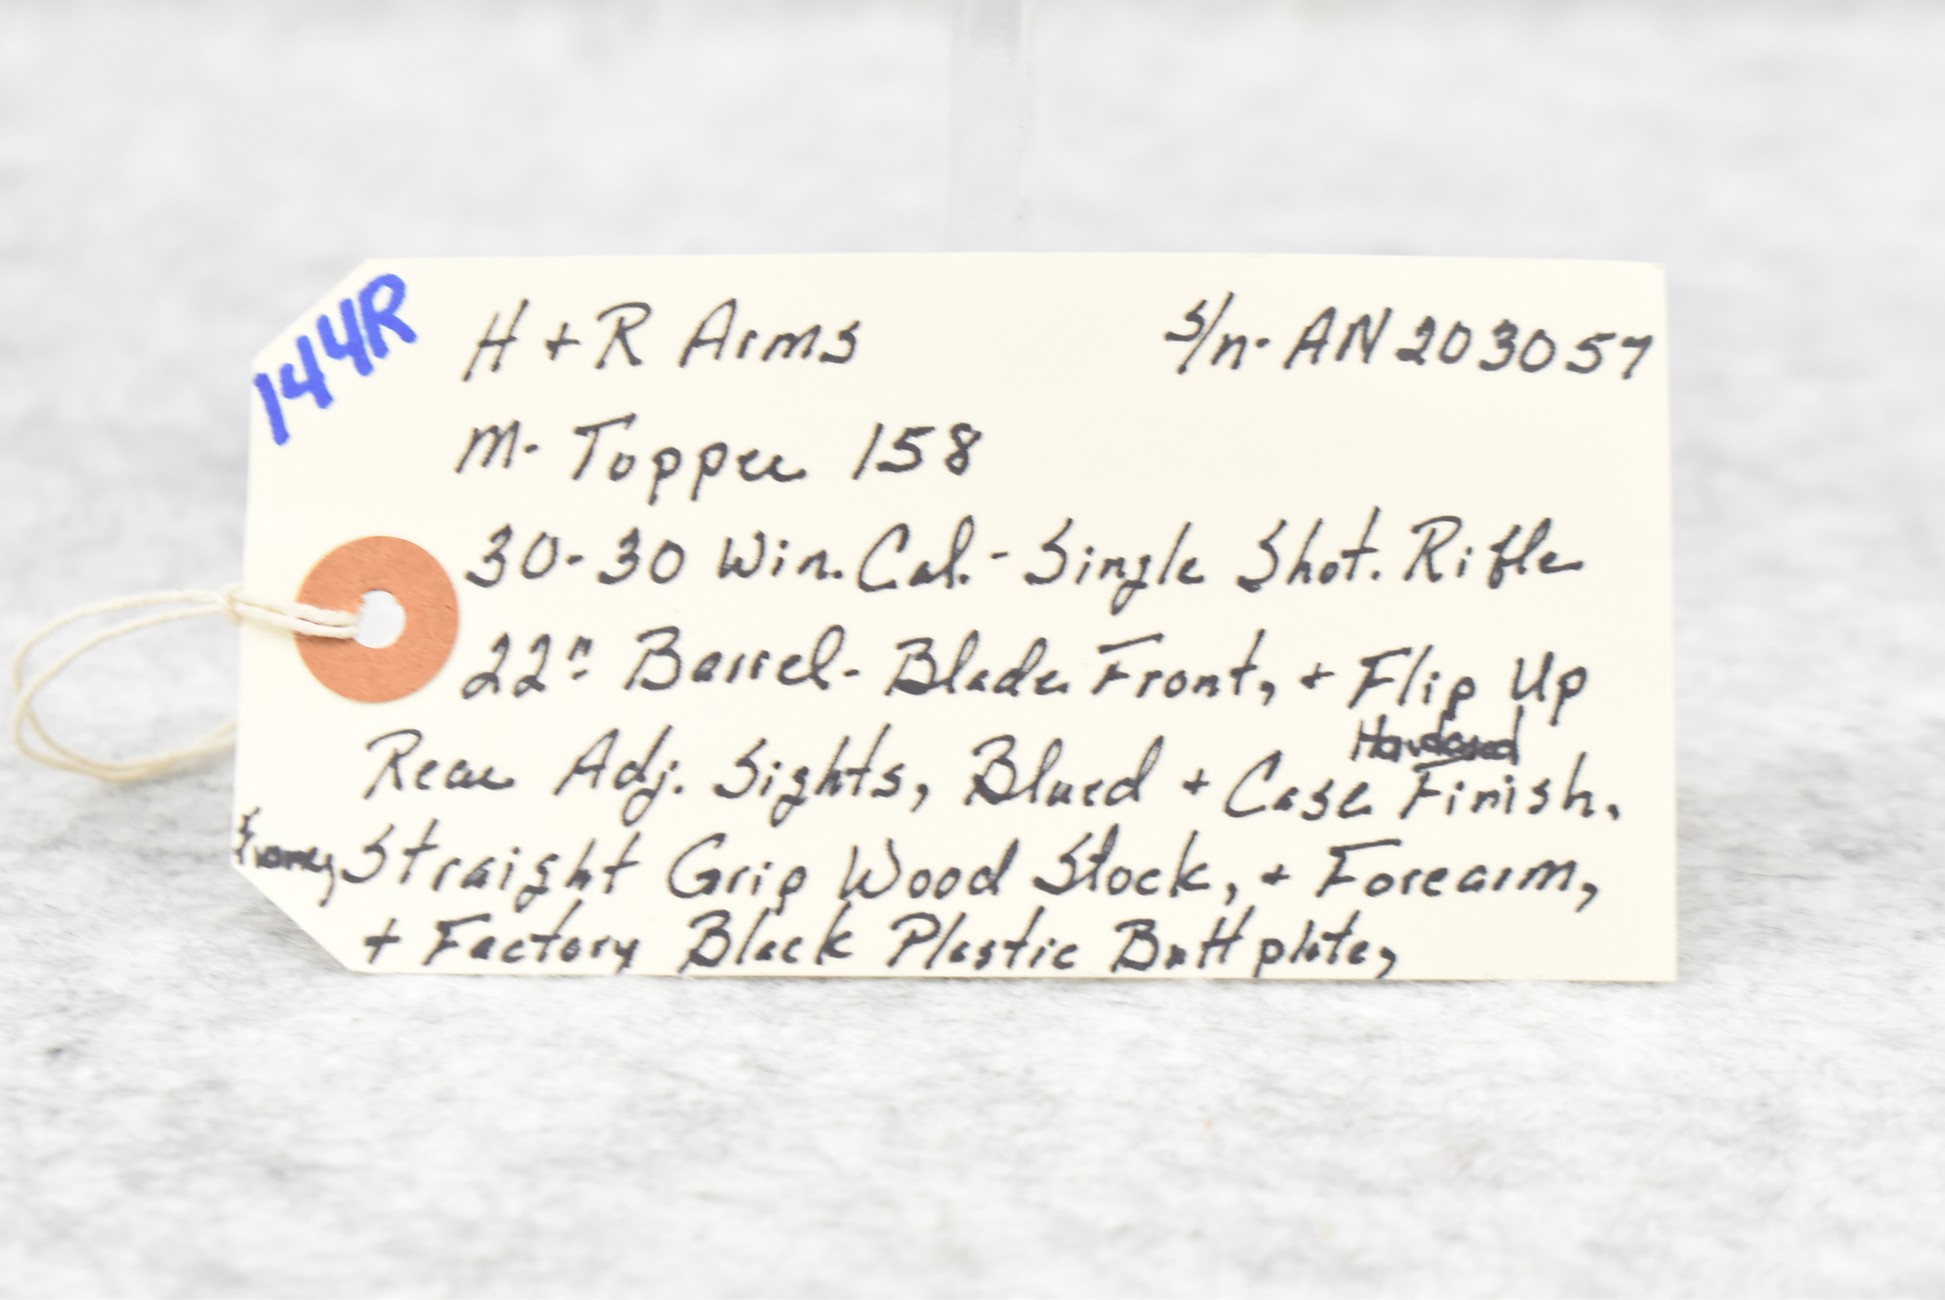 144R
H + R Arms S/n- AN203057
M- Topper 158
30-30 Win. Cal. - Single Shot. Rifle
22" Barrel- Blade Front, + Flip Up
Rear Adj. Sights, Blued + Case Hardened Finish,
Straight Grip Wood Stock, + Forearm,
+ Factory Black Plastic Buttplate,